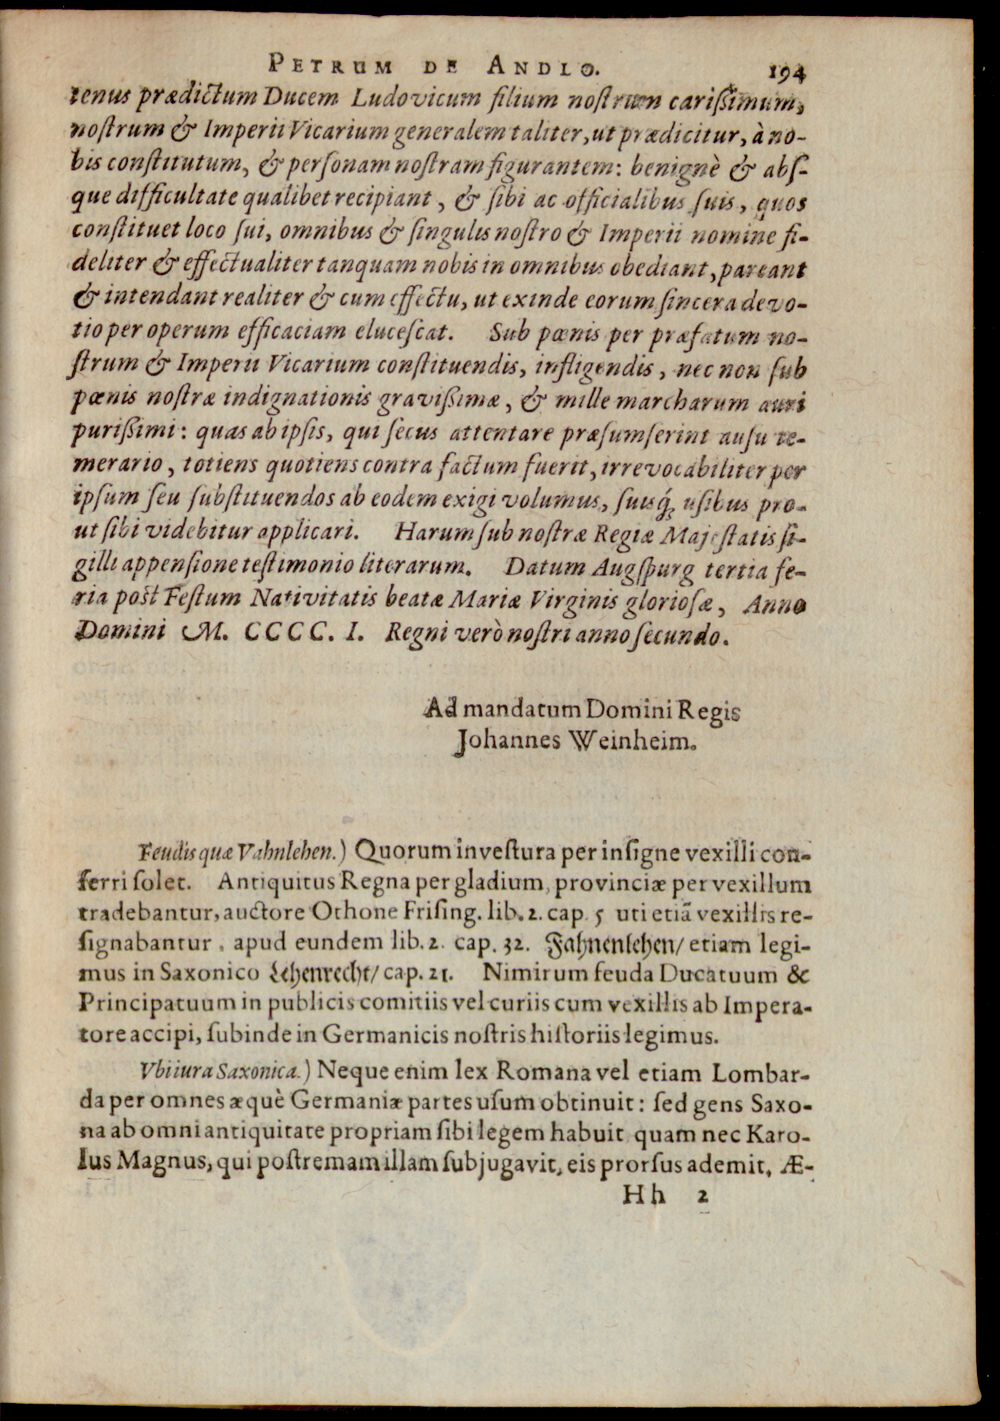 PETRUM DE ANDLO. 194
tenus prædictum Ducem Ludovicum filium nostrum carißimum,
nostrum & Imperii Vicarium generalem taliter, ut prædicitur, à no-
bis constitutum, & personam nostram figurantem: benignè & abs-
que difficultate qualibet recipiant, & sibi ac officialibus suis, quos
constituet loco sui, omnibus & singulis nostro & Imperii nomine fi-
deliter & effectualiter tanquam nobis in omnibus obediant, pareant
& intendant realiter & cum effectu, ut exinde eorum sincera devo-
tio per operum efficaciam elucescat. Sub pœnis per præfatum no-
strum & Imperii Vicarium constituendis, infligendis, nec non sub
pœnis nostræ indignationis gravißimæ, & mille marcharum auri
purißimi: quas ab ipsis, qui secus attentare præsumserint ausu te-
merario, totiens quotiens contra factum fuerit, irrevocabiliter per
ipsum seu substituendos ab eodem exigi volumus, suisq́; usibus pro-
ut sibi videbitur applicari. Harum sub nostræ Regiæ Majestatis si-
gilli appensione testimonio literarum. Datum Augspurg tertia fe-
ria post Festum Nativitatis beatæ Mariæ Virginis gloriosæ, Anno
Domini M. CCCC. I. Regni verò nostri anno secundo.
Ad mandatum Domini Regis
Johannes Weinheim.
Feudis quæ Vahnlehen.) Quorum investura per insigne vexilli con-
ferri solet. Antiquitus Regna per gladium, provinciæ per vexillum
tradebantur, auctore Othone Frising. lib. 2. cap. 5 uti etiã vexillis re-
signabantur, apud eundem lib. 2. cap. 32. Fahnenlehen/ etiam legi-
mus in Saxonico Lehenrecht/ cap. 21. Nimirum feuda Ducatuum &
Principatuum in publicis comitiis vel curiis cum vexillis ab Impera-
tore accipi, subinde in Germanicis nostris historiis legimus.
Vbi iura Saxonica.) Neque enim lex Romana vel etiam Lombar-
da per omnes æquè Germaniæ partes usum obtinuit: sed gens Saxo-
na ab omni antiquitate propriam sibi legem habuit quam nec Karo-
lus Magnus, qui postremam illam subjugavit, eis prorsus ademit, Æ-
Hh 2